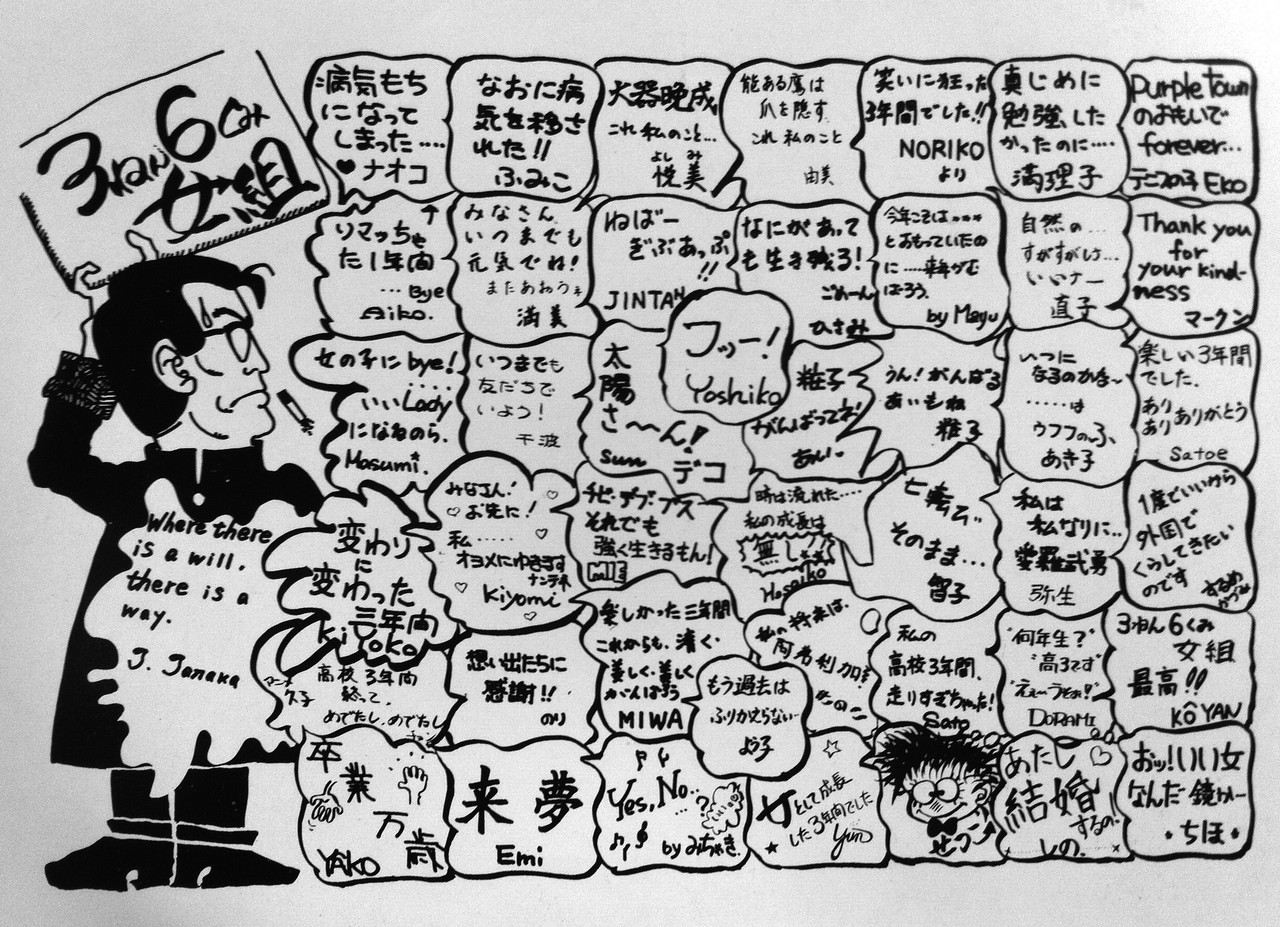 3ねん6くみ
女組
病気もち
になって
しまった……
♥ナオコ
なおに病
気を移さ
れた!!
ふみこ
大器晩成
これ私のこと…
よしみ
悦美
能ある鷹は
爪を隠す
これ私のこと
由美
笑いに狂った
3年間でした!!
NORIKO
より
真じめに
勉強した
かったのに……
満理子
Purple Town
のおもいで
forever…
テニスの子 Eko
↑
リマッちゃ
た1年間
…Bye
Aiko.
みなさん
いつまでも
元気でね!
またあおうネ
満美
ねばー
ぎぶあっぷ
!!
JINTAN
なにがあって
も生き残る!
ごめーん
ひさみ
今年こそは…
とおもっていたの
に……来年がむ
ばろう.
by Mayu
自然の…
すがすがしさ…
いいナー
直子
Thank you
for
your kind-
ness
マークン
女の子にbye!
‥‥
いいLady
になねのら.
Masumi.
いつまでも
友だちで
いよう!
千波
太
陽
さ〜ん!
sun デコ
フッー!
Yoshiko
粧子
がんばってネ
あい~
うん!がんばる
あいもね
粧子
いつに
なるのかな~
……は
ウフフの、ふ
あき子
楽しい3年間
でした.
あり
あり ありがとう
Satoe
Where there
is a will.
there is a
way.
J. Tanaka
変わり
に
変わった
三年間
kiyoko
みなさん!
お先に!
私……
オヨメにゆきます
ナンテネ
Kiyomi
チビ・デブ・ブス
それでも
強く生きるもん!
時は流れた……
私の成長は
無し
Hosaiko
七転び
そのまま…
智子
私は
私なりに…
愛羅武勇
弥生
1度でいいから
外国で
くらしてきたい
のです
久子
高校3年間
終って,
めでたし,めでたし
想い出たちに
感謝!!
のり
楽しかった三年間
これからも、清く・
美しく・美しく
がんばろう
MIWA
もう過去は
ふりかえらない
よう子
私の将来は、
阿希利加!
私の
高校3年間,
走りすぎちゃった!
Sato
"何年生?"
"高3です"
"えぇーうそぉ!"
DORAMI
3ねん6くみ
女組
最高!!
KÔYAN
卒
業
万
歳
YAKO
来夢
Emi
Yes, No..
…?
by みちゃき.
女として成長
した3年間でした
Yun
せつこ
あたし
結婚
するの!
しの.
おッ!いい女
なんだ鏡かー
・ちほ・